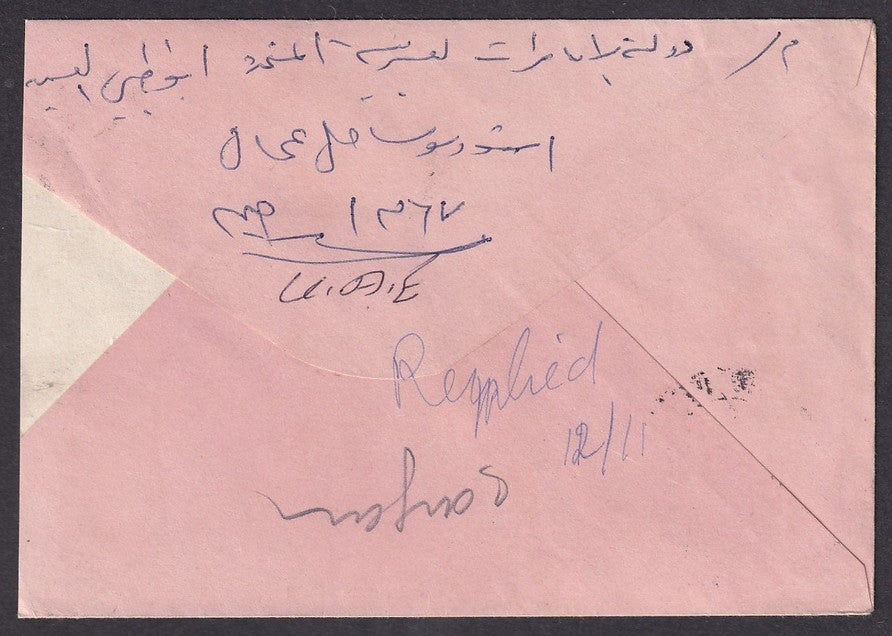 م/ دولة الامارات لعربية المتحدة ابوظبي العين
استوديو ساحل عمان
ص ب ١٣٦٧
Repplied
12/11